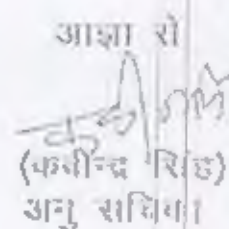 आज्ञा से
(कवीन्द्र सिंह)
अनु सचिव।